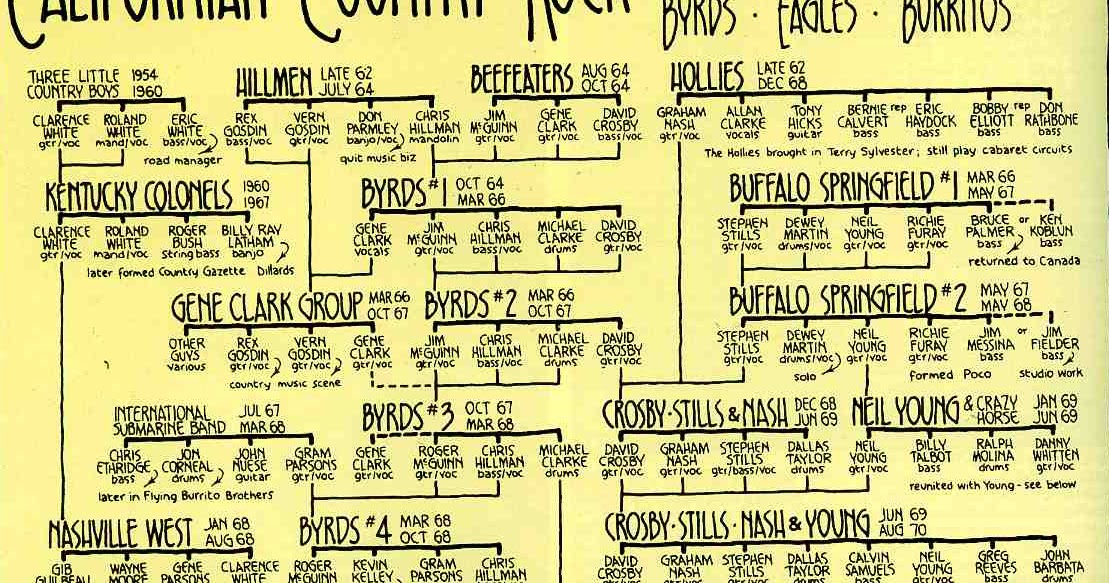 CALIFORNIAN COUNTRY ROCK BYRDS · EAGLES · BURRITOS
THREE LITTLE 1954
COUNTRY BOYS 1960
CLARENCE WHITE gtr/voc
ROLAND WHITE mand/voc
ERIC WHITE bass/voc
road manager
HILLMEN LATE 62 JULY 64
REX GOSDIN bass/voc
VERN GOSDIN gtr/voc
DON PARMLEY banjo/voc
CHRIS HILLMAN mandolin
quit music biz
BEEFEATERS AUG 64 OCT 64
JIM McGUINN gtr/voc
GENE CLARK gtr/voc
DAVID CROSBY gtr/voc
HOLLIES LATE 62 DEC 68
GRAHAM NASH gtr/voc
ALLAN CLARKE vocals
TONY HICKS guitar
BERNIE CALVERT bass
rep
ERIC HAYDOCK bass
BOBBY ELLIOTT bass
rep
DON RATHBONE bass
The Hollies brought in Terry Sylvester; still play cabaret circuits
KENTUCKY COLONELS 1960 1967
CLARENCE WHITE gtr/voc
ROLAND WHITE mand/voc
ROGER BUSH string bass
BILLY RAY LATHAM banjo
later formed Country Gazette Dillards
BYRDS #1 OCT 64 MAR 66
GENE CLARK vocals
JIM McGUINN gtr/voc
CHRIS HILLMAN bass/voc
MICHAEL CLARKE drums
DAVID CROSBY gtr/voc
BUFFALO SPRINGFIELD #1 MAR 66 MAY 67
STEPHEN STILLS gtr/voc
DEWEY MARTIN drums/voc
NEIL YOUNG gtr/voc
RICHIE FURAY gtr/voc
BRUCE PALMER bass
or
KEN KOBLUN bass
returned to Canada
GENE CLARK GROUP MAR 66 OCT 67
OTHER GUYS various
REX GOSDIN gtr/voc
VERN GOSDIN gtr/voc
GENE CLARK gtr/voc
country music scene
BYRDS #2 MAR 66 OCT 67
JIM McGUINN gtr/voc
CHRIS HILLMAN bass/voc
MICHAEL CLARKE drums
DAVID CROSBY gtr/voc
BUFFALO SPRINGFIELD #2 MAY 67 MAY 68
STEPHEN STILLS gtr/voc
DEWEY MARTIN drums/voc
NEIL YOUNG gtr/voc
RICHIE FURAY gtr/voc
JIM MESSINA bass
or
JIM FIELDER bass
solo formed Poco studio work
INTERNATIONAL SUBMARINE BAND JUL 67 MAR 68
CHRIS ETHRIDGE bass
JON CORNEAL drums
JOHN NUESE guitar
GRAM PARSONS gtr/voc
later in Flying Burrito Brothers
BYRDS #3 OCT 67 MAR 68
GENE CLARK gtr/voc
ROGER McGUINN gtr/voc
CHRIS HILLMAN bass/voc
MICHAEL CLARKE drums
CROSBY·STILLS & NASH DEC 68 JUN 69
DAVID CROSBY gtr/voc
GRAHAM NASH gtr/voc
STEPHEN STILLS gtr/bass/voc
DALLAS TAYLOR drums
NEIL YOUNG & CRAZY HORSE JAN 69 JUN 69
NEIL YOUNG gtr/voc
BILLY TALBOT bass
RALPH MOLINA drums
DANNY WHITTEN gtr/voc
reunited with Young - see below
NASHVILLE WEST JAN 68 AUG 68
GIB GUILBEAU
WAYNE MOORE
GENE PARSONS
CLARENCE WHITE
BYRDS #4 MAR 68 OCT 68
ROGER McGUINN
KEVIN KELLEY
GRAM PARSONS
CHRIS HILLMAN
CROSBY·STILLS·NASH & YOUNG JUN 69 AUG 70
DAVID CROSBY
GRAHAM NASH
STEPHEN STILLS
DALLAS TAYLOR
CALVIN SAMUELS
NEIL YOUNG
GREG REEVES
JOHN BARBATA